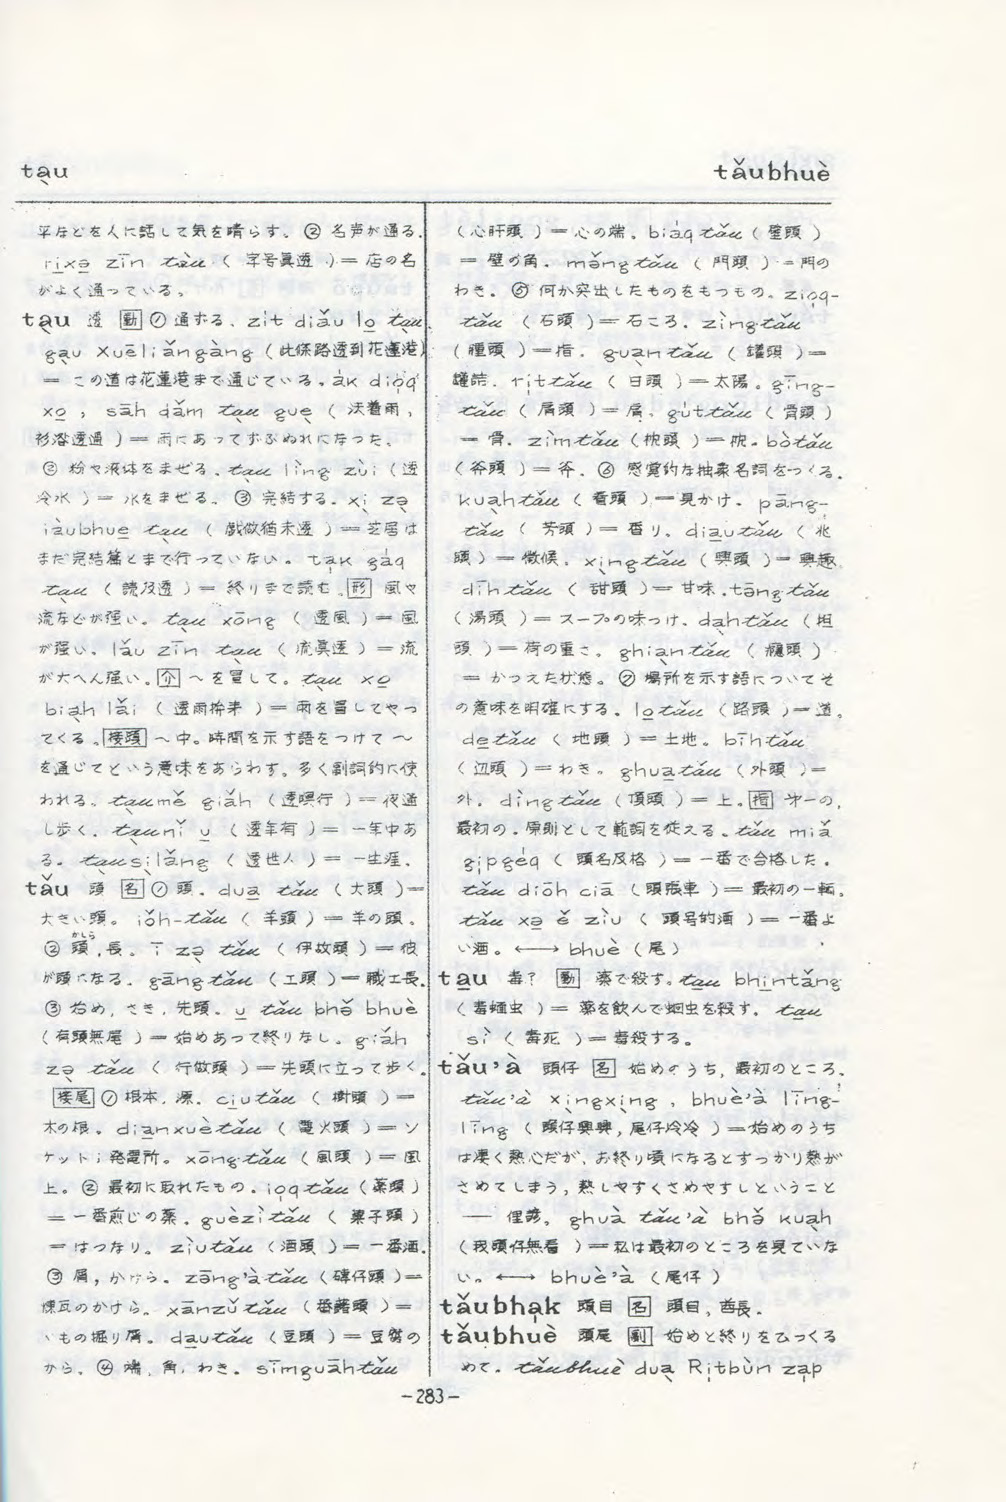 tạu
tǎubhuè
平などを人に話して気を晴らす。② 名声が通る。
rixə zīn tàu ( 字号真透 ) = 店の名
がよく通っている。
tạu 透 動 ① 通ずる。zit diǎu lo tạu
gau Xuēliǎngàng (此條路透到花蓮港)
= この道は花蓮港まで通じている。ák diọq
xo , sāh dǎm tạu gue ( 沃着雨,
衫澹透過 ) = 雨にあってずぶぬれになった。
② 粉や液体をまぜる。tạu lìng zùi (透
冷水 ) = 水をまぜる。③ 完結する。xi zə
iàubhue tạu ( 戯做猶未透 ) = 芝居は
まだ完結篇とまで行っていない。tạk gàq
tạu ( 読及透 ) = 終りまで読む。形 風や
流などが強い。tạu xōng ( 透風 ) = 風
が強い。lǎu zīn tạu ( 流真透 ) = 流
が大へん強い。介 〜を冒して。tạu xo
biah lǎi ( 透雨拚来 ) = 雨を冒してやっ
てくる。接頭 〜中。時間を示す語をつけて〜
を通じてという意味をあらわす。多く副詞的に使
われる。tạumě giǎh (透暝行 ) = 夜通
し歩く。tạunǐ u ( 透年有 ) = 一年中あ
る。tạusilǎng ( 透世人 ) = 一生涯。
tǎu 頭 名 ① 頭。dua tǎu (大頭 ) =
大きい頭。iǒh-tǎu ( 羊頭 ) = 羊の頭。
② 頭,長。ī zə tǎu (伊做頭 ) = 彼
が頭になる。gāngtǎu (工頭 ) = 職工長。
③ 始め,さき,先頭。u tǎu bhə̌ bhuè
(有頭無尾 ) = 始めあって終りなし。giǎh
zə tǎu ( 行做頭 ) = 先頭に立って歩く。
接尾 ① 根本,源。ciutǎu ( 樹頭 ) =
木の根。dianxuètǎu ( 電火頭 ) = ソ
ケット;発電所。xōng-tǎu (風頭 ) = 風
上。② 最初に取れたもの。ioqtǎu (薬頭 )
= 一番煎じの薬。guèzìtǎu ( 菓子頭 )
= はつなり。ziùtǎu (酒頭 ) = 一番酒。
③ 屑,かけら。zāng'à-tǎu (磚仔頭 ) =
煉瓦のかけら。xānzǔtǎu (番藷頭 ) =
いもの掘り屑。dautǎu (豆頭 ) = 豆腐の
から。④ 端,角,わき。sīmguāhtǎu
(心肝頭 ) = 心の端。biáqtǎu (壁頭 )
= 壁の角。mǒngtǎu ( 門頭 ) = 門の
わき。⑤ 何か突出したものをもつもの。zioq-
tǎu (石頭 ) = 石ころ。zìngtǎu
(腫頭 ) = 指。guantǎu ( 罐頭 ) =
罐詰。rittǎu ( 日頭 ) = 太陽。gīng-
tǎu ( 肩頭 ) = 肩。gúttǎu ( 骨頭 )
= 骨。zìmtǎu (枕頭 ) = 枕。bòtǎu
(斧頭 ) = 斧。⑥ 感覚的な抽象名詞をつくる。
kuahtǎu ( 看頭 ) = 見かけ。pāng-
tǎu ( 芳頭 ) = 香り。diautǎu ( 兆
頭 ) = 徴候。xingtǎu (興頭 ) = 興趣
dīhtǎu ( 甜頭 ) = 甘味。tōngtǎu
(湯頭 ) = スープの味つけ。dahtǎu (担
頭 ) = 荷の重さ。ghiantǎu ( 癮頭 )
= かつえた状態。⑦ 場所を示す語についてそ
の意味を明確にする。lotǎu (路頭 ) = 道。
detǎu ( 地頭 ) = 土地。bīhtǎu
(辺頭 ) = わき。ghuatǎu (外頭 ) =
外。dìngtǎu (頂頭 ) = 上。指 第一の,
最初の。原則として範詞を従える。tǎu miǎ
gipgéq ( 頭名及格 ) = 一番で合格した。
tǎu diōh ciā (頭張車 ) = 最初の一輌。
tǎu xə ě ziù ( 頭号的酒 ) = 一番よ
い酒。←→ bhuè (尾)
tau 毒? 動 薬で殺す。tau bhintǎng
(毒蛔虫 ) = 薬を飲んで蛔虫を殺す。tau
sì ( 毒死 ) = 毒殺する。
tǎu'à 頭仔 名 始めのうち,最初のところ。
tǎu'à xingxing , bhuè'à lǐng-
lǐng ( 頭仔興興, 尾仔冷冷 ) = 始めのうち
は凄く熱心だが,お終り頃になるとすっかり熱が
さめてしまう,熱しやすくさめやすしということ
— 俚諺。ghuà tǎu'à bhə̌ kuah
(我頭仔無看 ) = 私は最初のところを見ていな
い。←→ bhuè'à (尾仔)
tǎubhak 頭目 名 頭目,酋長。
tǎubhuè 頭尾 副 始めと終りをひっくる
めて。tǎubhuè dua Ritbùn zap
-283-